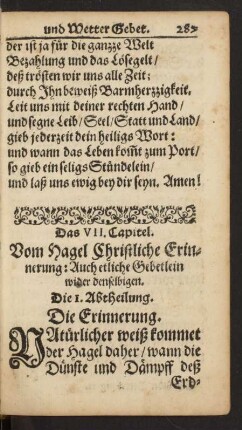 und Wetter Gebet. 285
der ist ja für die gantze Welt
Bezahlung und das Lösegelt/
deß trösten wir uns alle Zeit;
durch Ihn beweiß Barmhertzigkeit.
Leit uns mit deiner rechten Hand/
und segne Leib/ Seel/ Statt und Land/
gieb jederzeit dein heiligs Wort:
und wann das Leben kom̃t zum Port/
so gieb ein seligs Stündelein/
und laß uns ewig bey dir seyn. Amen!
Das VII. Capitel.
Vom Hagel Christliche Erin-
nerung: Auch etliche Gebetlein
wider denselbigen.
Die I. Abtheilung.
Die Erinnerung.
NAtürlicher weiß kommet
der Hagel daher/ wann die
Dünste und Dämpff deß
Erd-